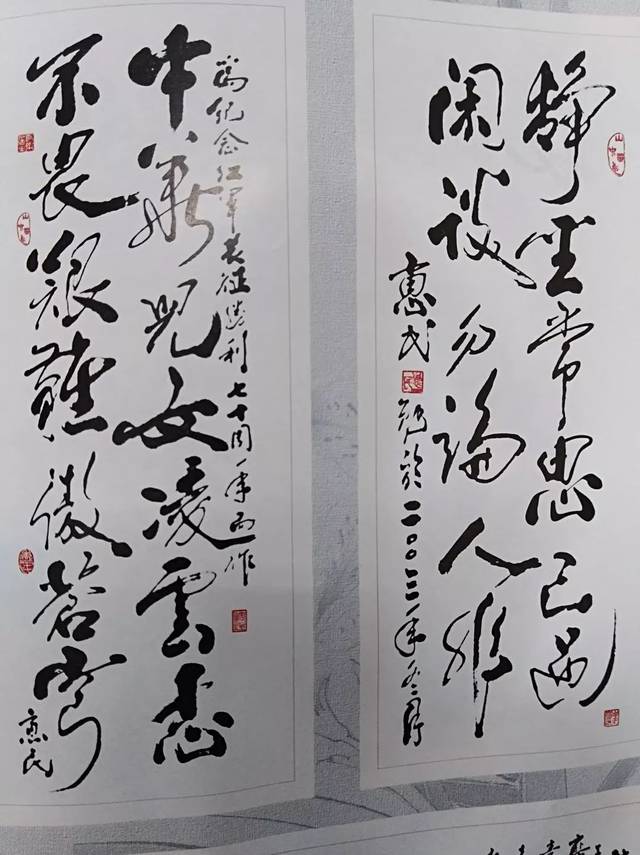 静坐常思己过
闲谈勿论人非
惠民
於二〇〇三年冬月
为纪念红军长征胜利七十周年而作
中华儿女凌云志
不畏艰难傲苍穹
惠民